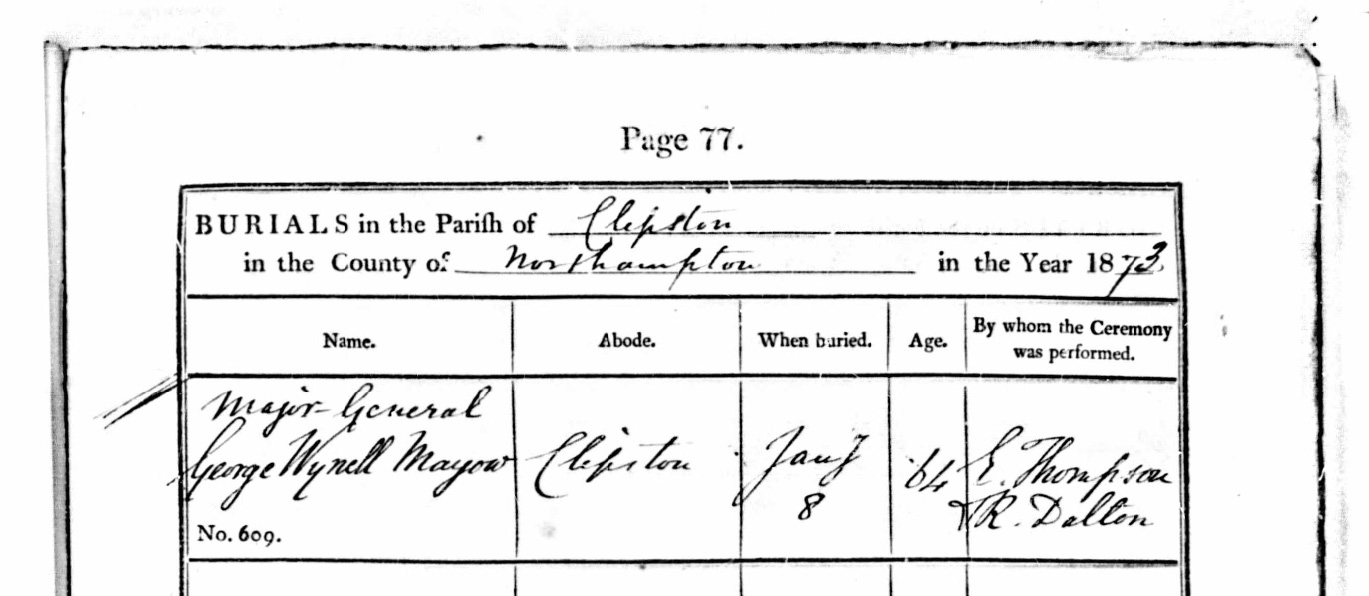 Page 77.
BURIALS in the Pariſh of Clipston
in the County of Northampton in the Year 1873
Name. Abode. When buried. Age. By whom the Ceremony was performed.
Major-General
George Wynell Mayow Clipston Jany 64 E. Thompson
8 & R. Dalton
No. 609.